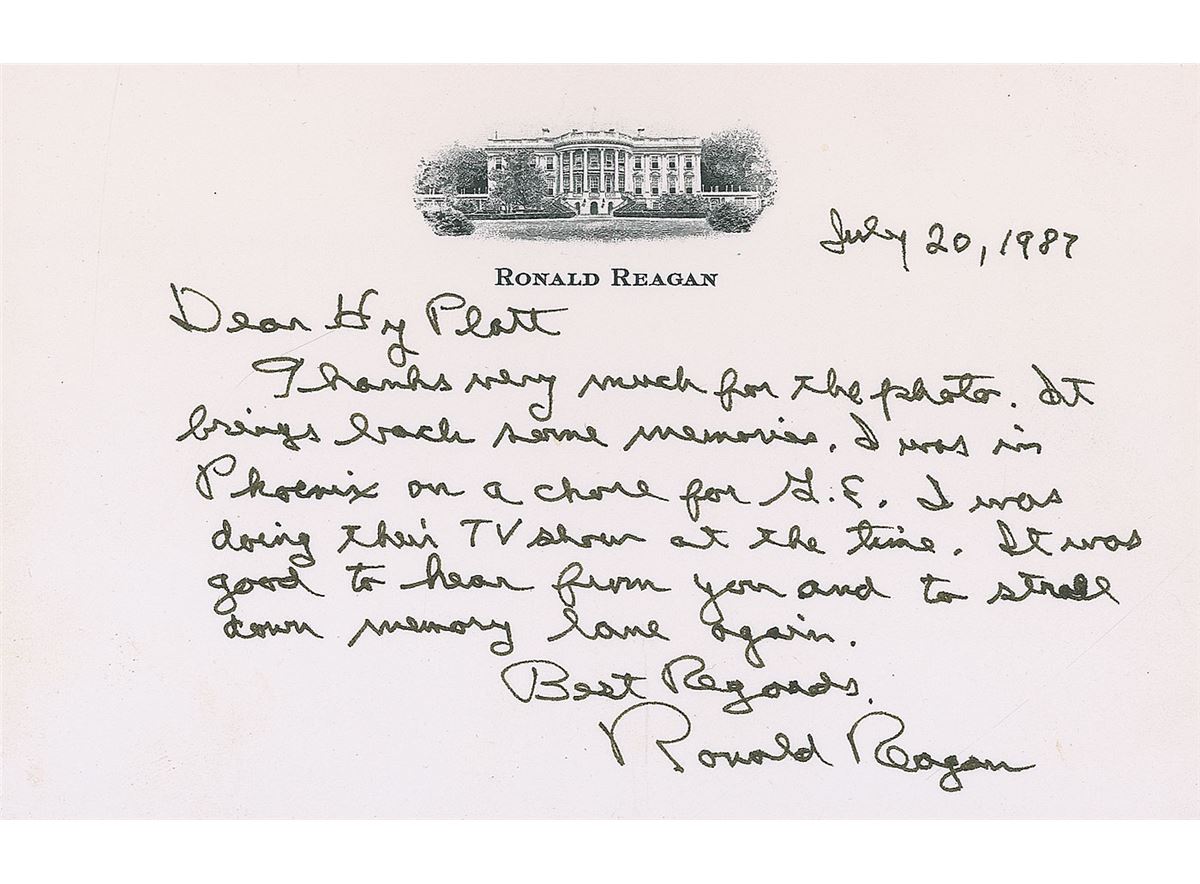 July 20, 1987
RONALD REAGAN
Dear Hy Platt
Thanks very much for the photo. It
brings back some memories. I was in
Phoenix on a chore for G.E. I was
doing their TV show at the time. It was
good to hear from you and to stroll
down memory lane again.
Best Regards.
Ronald Reagan